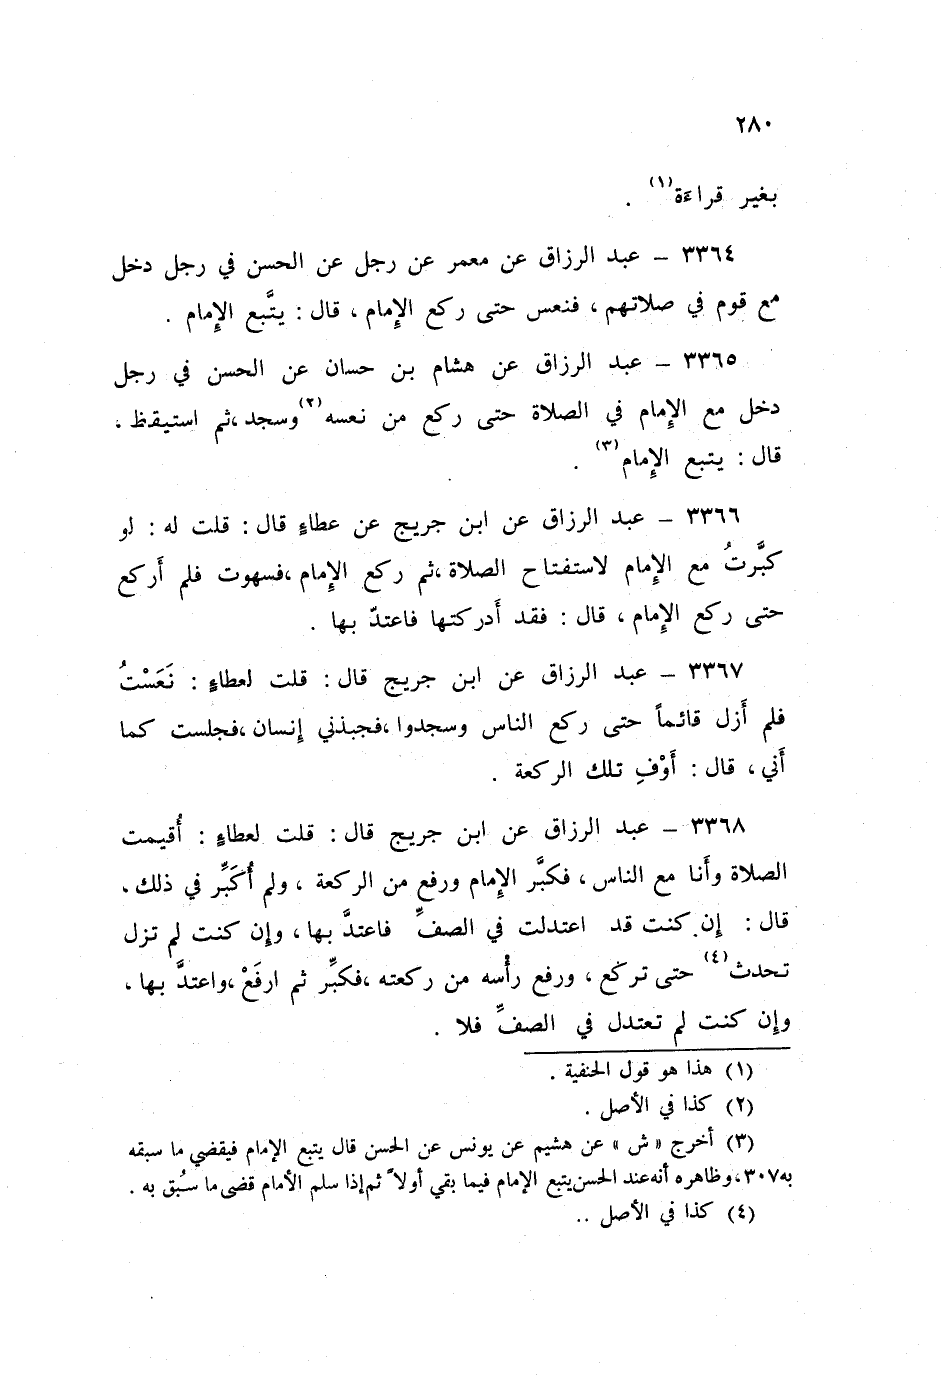 ٢٨٠
بغير قراءة(١) .
٣٣٦٤ – عبد الرزاق عن معمر عن رجل عن الحسن في رجل دخل
مع قوم في صلاتهم ، فنعس حتى ركع الإِمام ، قال : يتَّبع الإِمام .
٣٣٦٥ – عبد الرزاق عن هشام بن حسان عن الحسن في رجل
دخل مع الإِمام في الصلاة حتى ركع من نعسه(٢) وسجد ،ثم استيقظ ،
قال : يتبع الإِمام(٣) .
٣٣٦٦ – عبد الرزاق عن ابن جريج عن عطاءٍ قال : قلت له : لو
كبَّرتُ مع الإِمام لاستفتاح الصلاة ،ثم ركع الإِمام ،فسهوت فلم أَركع
حتى ركع الإِمام ، قال : فقد أَدركتها فاعتدّ بها .
٣٣٦٧ – عبد الرزاق عن ابن جريج قال : قلت لعطاءٍ : نَعَسْتُ
فلم أَزل قائماً حتى ركع الناس وسجدوا ،فجبذني إنسان ،فجلست كما
أَني ، قال : أَوْفِ تلك الركعة .
٣٣٦٨ – عبد الرزاق عن ابن جريج قال : قلت لعطاءٍ : أُقيمت
الصلاة وأَنا مع الناس ، فكبَّر الإِمام ورفع من الركعة ، ولم أُكَبِّر في ذلك ،
قال : إِن كنت قد اعتدلت في الصفِّ فاعتدَّ بها ، وإِن كنت لم تزل
تحدث(٤) حتى تركع ، ورفع رأْسه من ركعته ،فكبِّر ثم ارفَعْ ،واعتدَّ بها ،
وإِن كنت لم تعتدل في الصفِّ فلا .
(١) هذا هو قول الحنفية .
(٢) كذا في الأصل .
(٣) أخرج « ش » عن هشيم عن يونس عن الحسن قال يتبع الإمام فيقضي ما سبقه
به٣٠٧، وظاهره أنه عند الحسن يتبع الإمام فيما بقي أولاً ثم إذا سلم الأمام قضى ما سُبق به .
(٤) كذا في الأصل ..